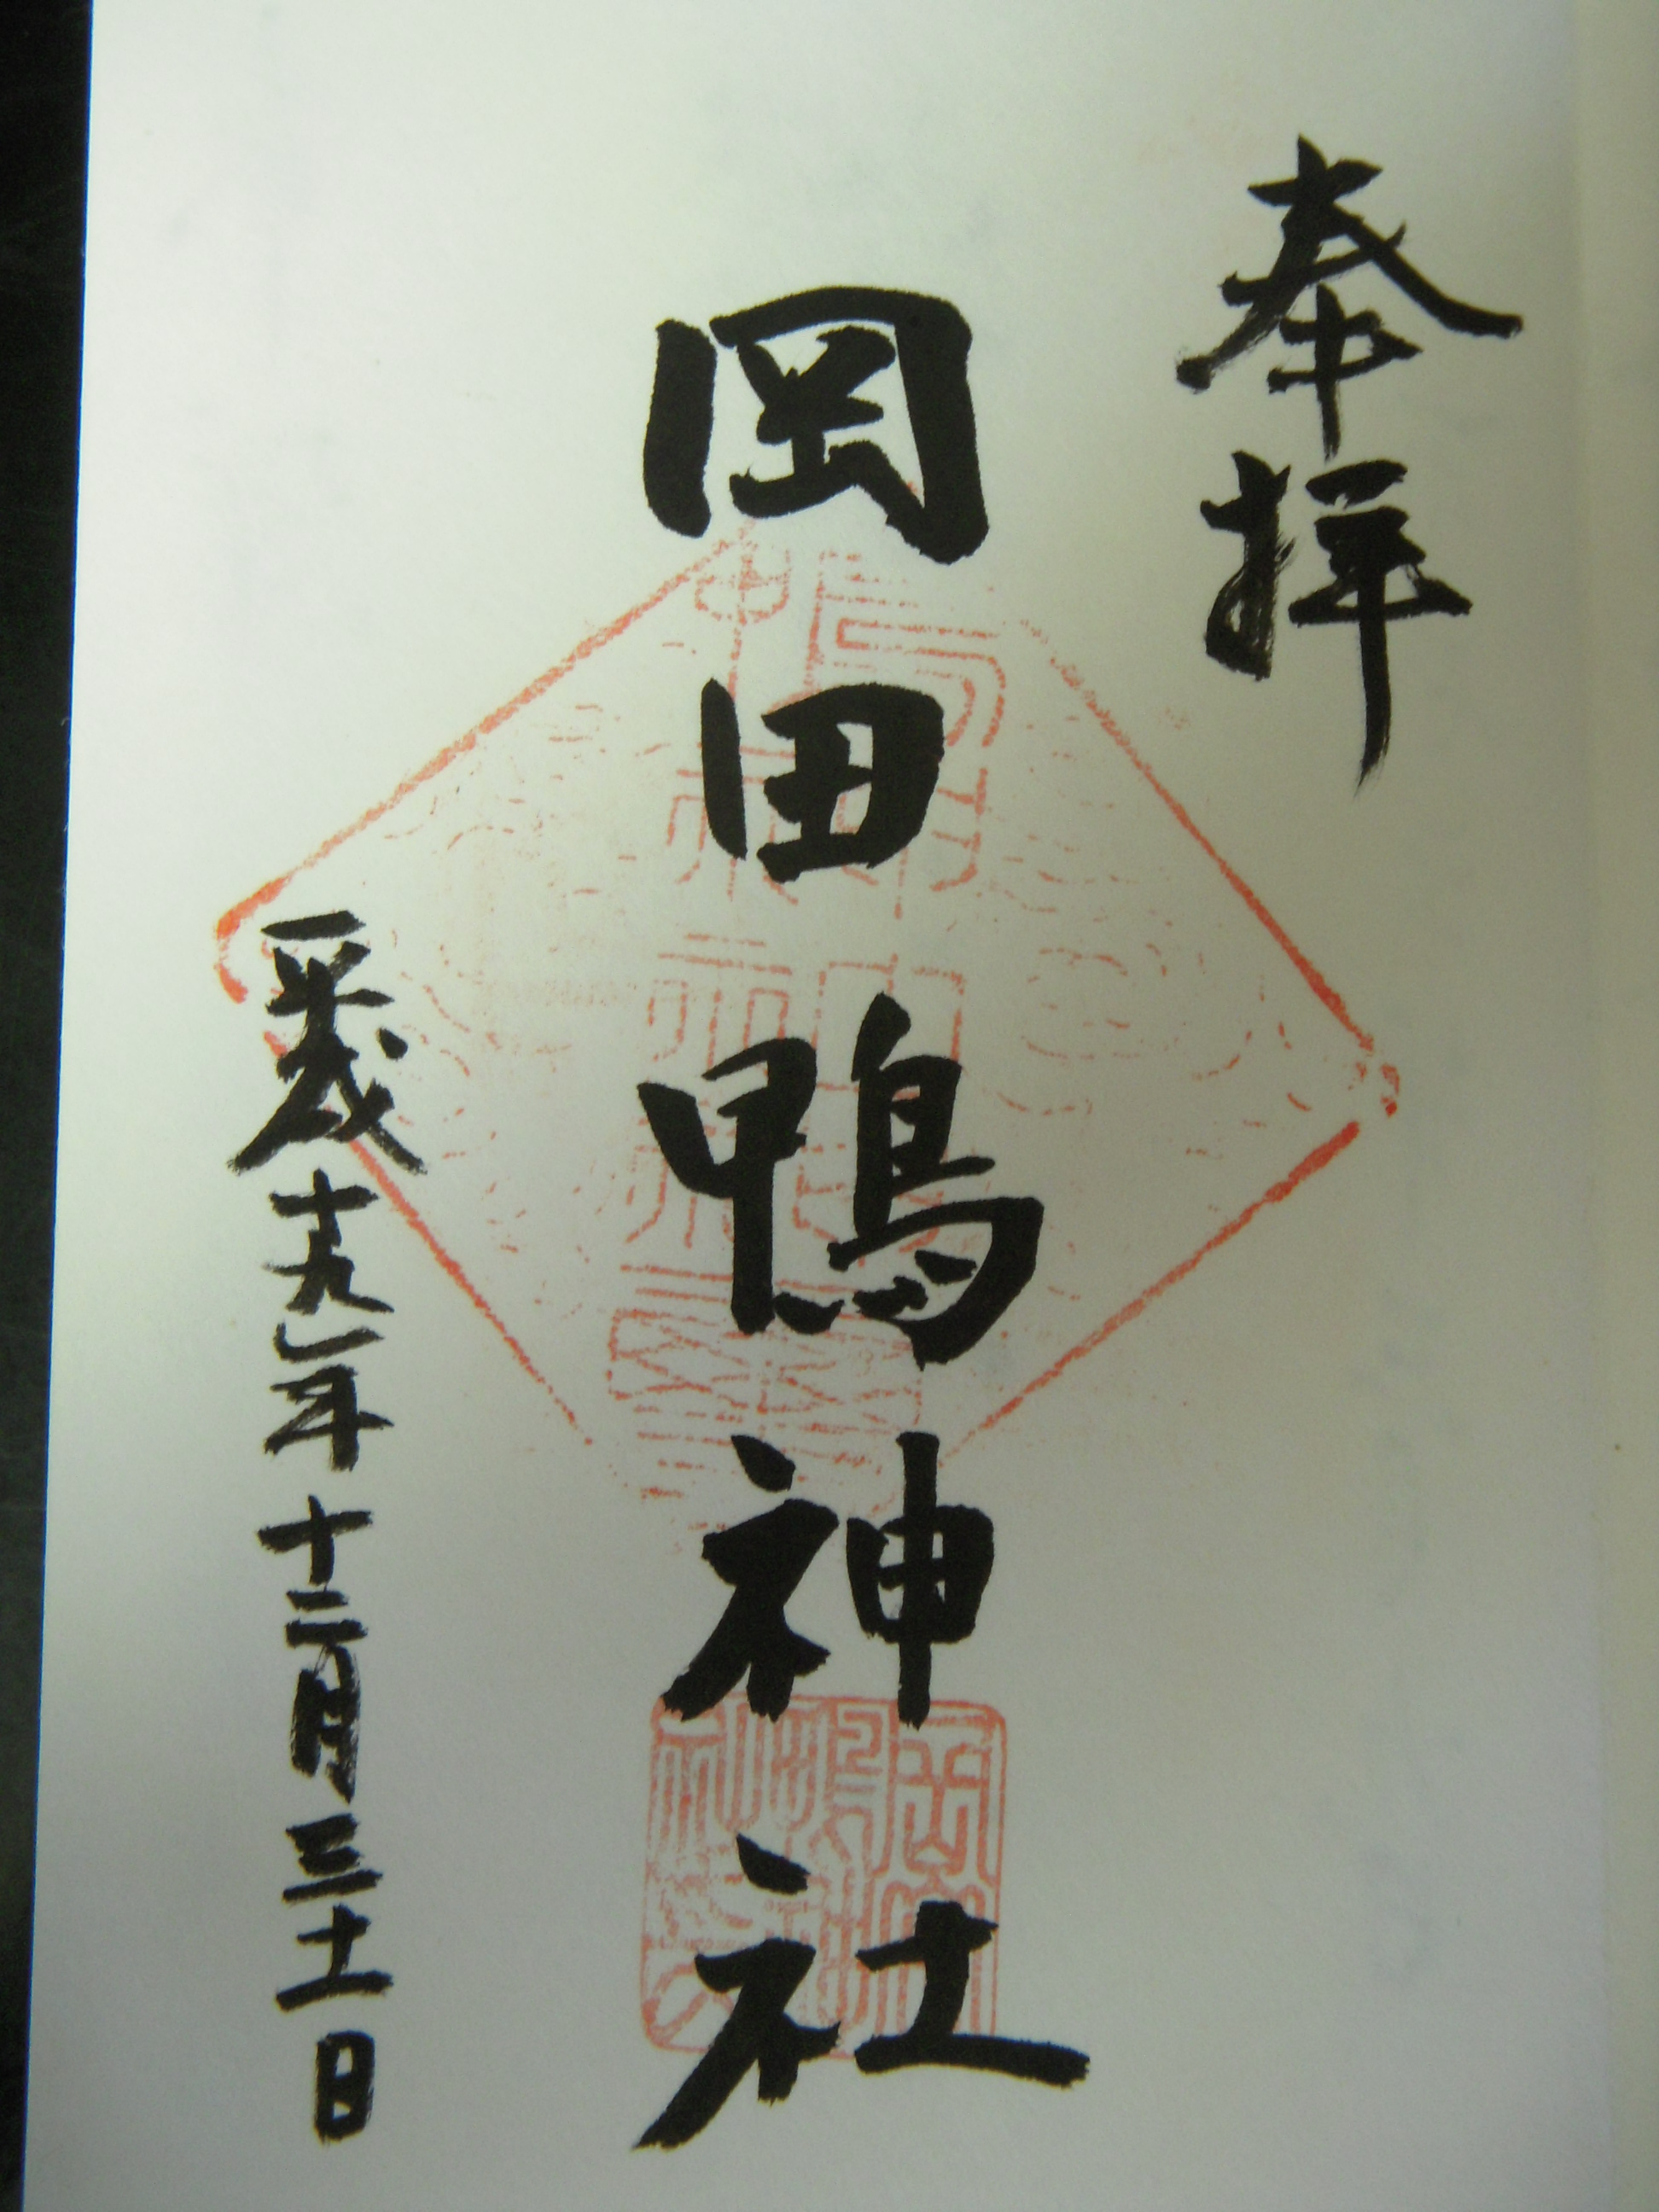 奉拝
岡田鴨神社
平成十九年十二月三十一日